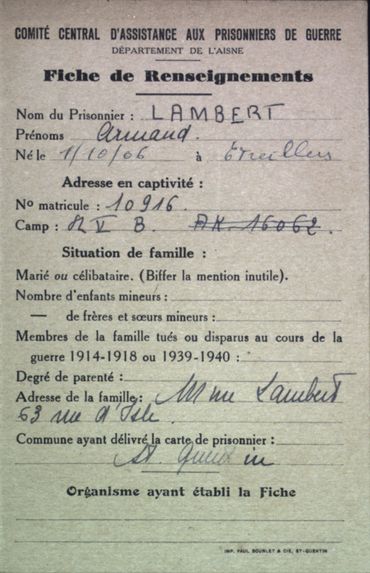 COMITÉ CENTRAL D'ASSISTANCE AUX PRISONNIERS DE GUERRE
DÉPARTEMENT DE L'AISNE
Fiche de Renseignements
Nom du Prisonnier : LAMBERT
Prénoms Armand.
Né le 1/10/06 à Etreillers
Adresse en captivité :
No matricule : 10916.
Camp : V B. AK. 16062.
Situation de famille :
Marié ou célibataire. (Biffer la mention inutile).
Nombre d'enfants mineurs :
— de frères et sœurs mineurs :
Membres de la famille tués ou disparus au cours de la
guerre 1914-1918 ou 1939-1940 :
Degré de parenté :
Adresse de la famille : Mme Lambert
63 rue d'Isle.
Commune ayant délivré la carte de prisonnier :
St. Quentin
Organisme ayant établi la Fiche
IMP. PAUL BOURLET & CIE, ST-QUENTIN